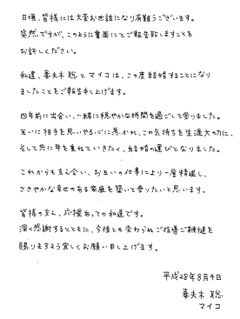 日頃、皆様には大変お世話になり有難うございます。
突然ですが、このように書面にてご報告致しますことを
お許しください。
私達、妻夫木 聡 と マイコ は、この度 結婚することになり
ましたことをご報告申し上げます。
四年前に出会い、一緒に穏やかな時間を過ごして参りました。
互いに相手を思いやる心に惹かれ、この気持ちを生涯大切に、
そして共に年を重ねていきたく、結婚の運びとなりました。
これからも支え合い、お互いの仕事により一層精進し、
ささやかな幸せのある家庭を築いて参りたいと思います。
皆様の支え、応援あっての私達です。
深く感謝するとともに、今後とも変わらぬご指導ご鞭撻を
賜りますよう宜しくお願い申し上げます。
平成28年8月4日
妻夫木 聡
マイコ